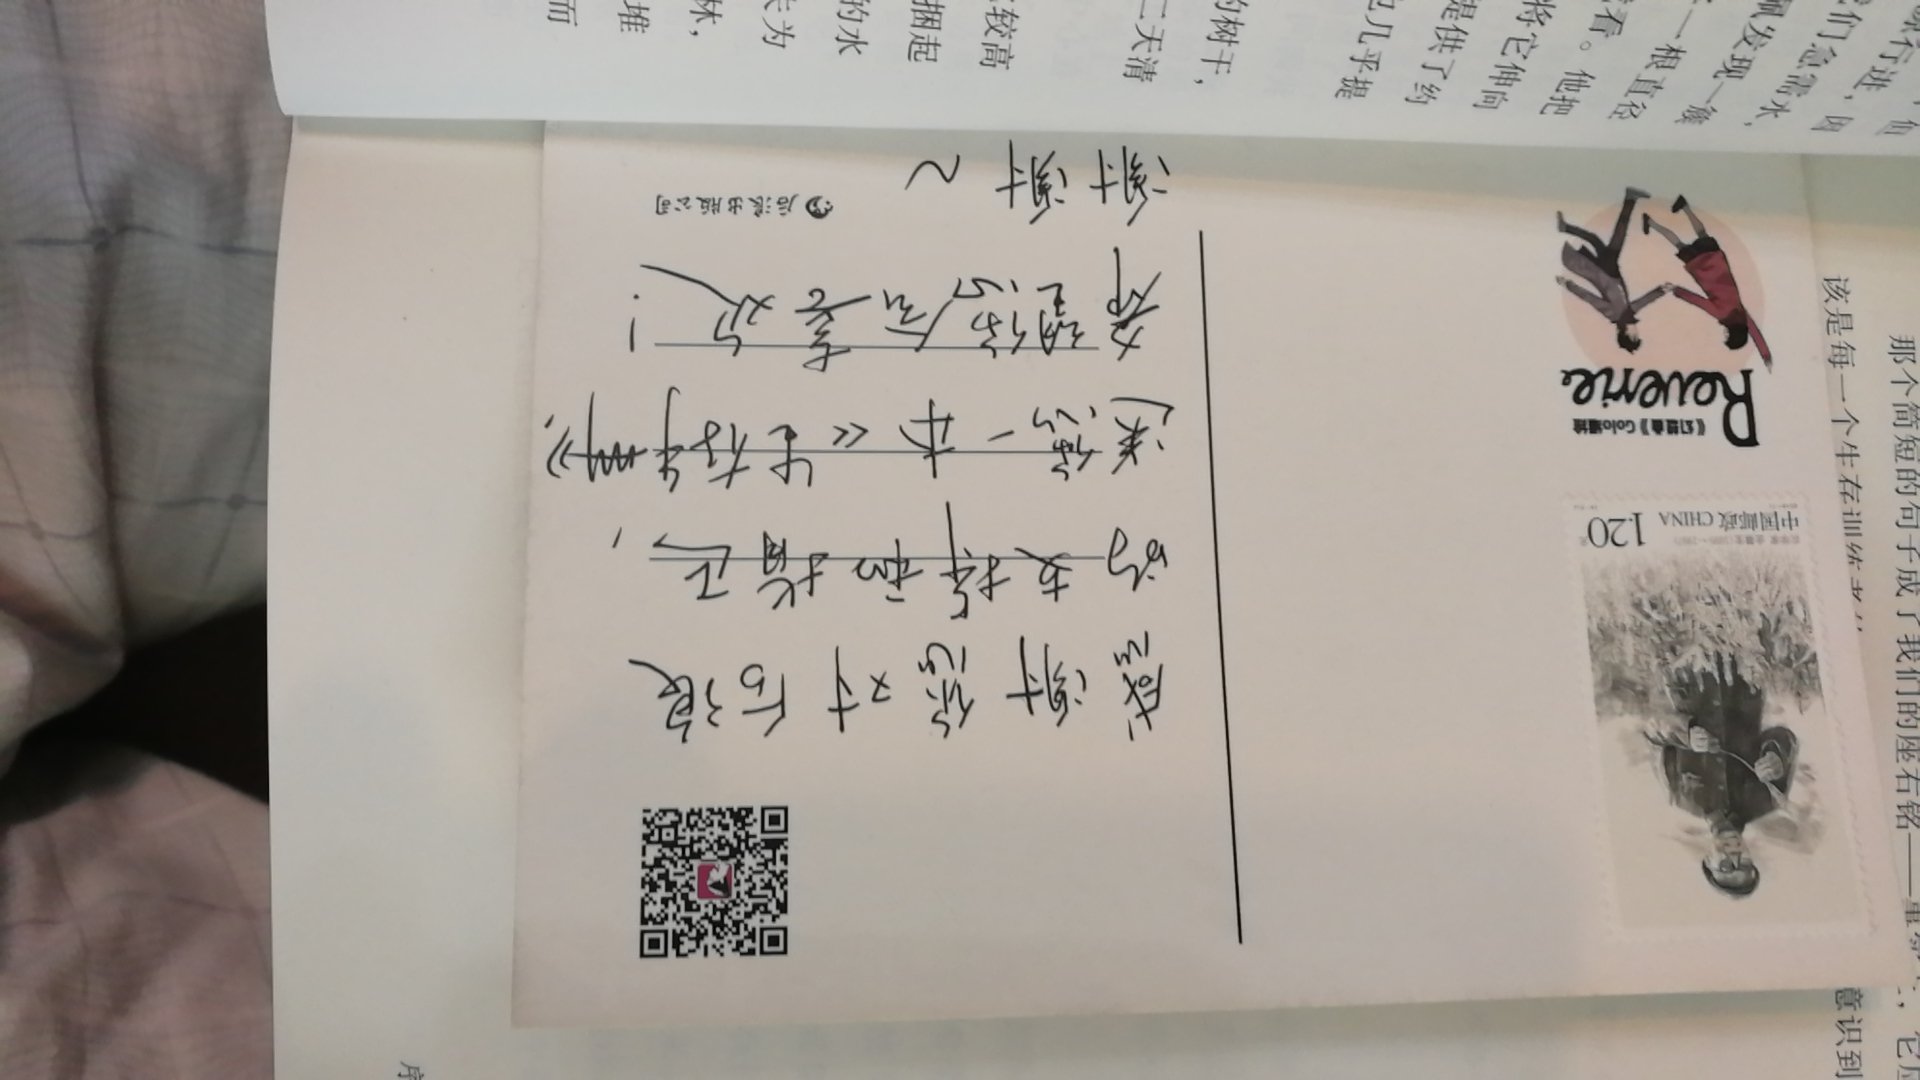 感谢您对后浪
的支持和指正，
送您一本《生存手册》，
希望您会喜欢！
谢谢~
后浪出版公司
《幻想曲》Golo编绘
Reverie
中国邮政 CHINA
1.20
行进，因
们急需水，
发现一簇
一根直径
看。他把
将它伸向
提供了约
几乎提
二天清
的树干，
较高
捆起
的水
夫为
林，
堆
而
那个简短的句子成了我们的座右铭——
该是每一个生存训练者
意识到
序